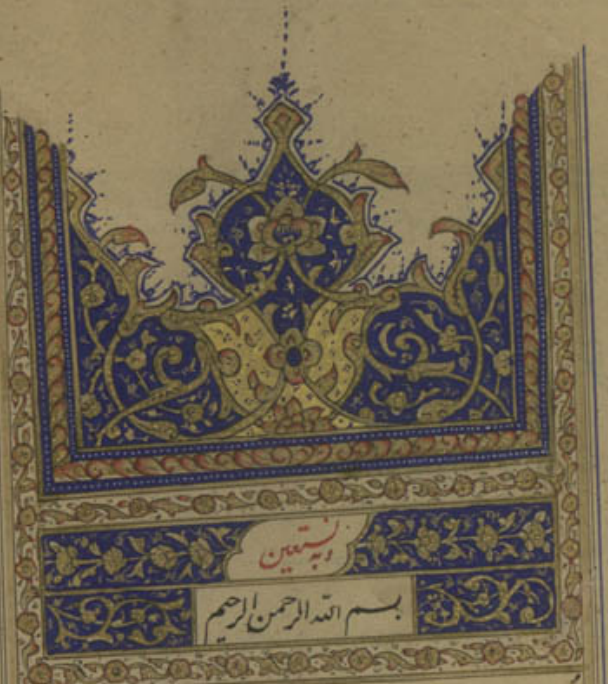 وبه نستعین
بسم الله الرحمن الرحیم